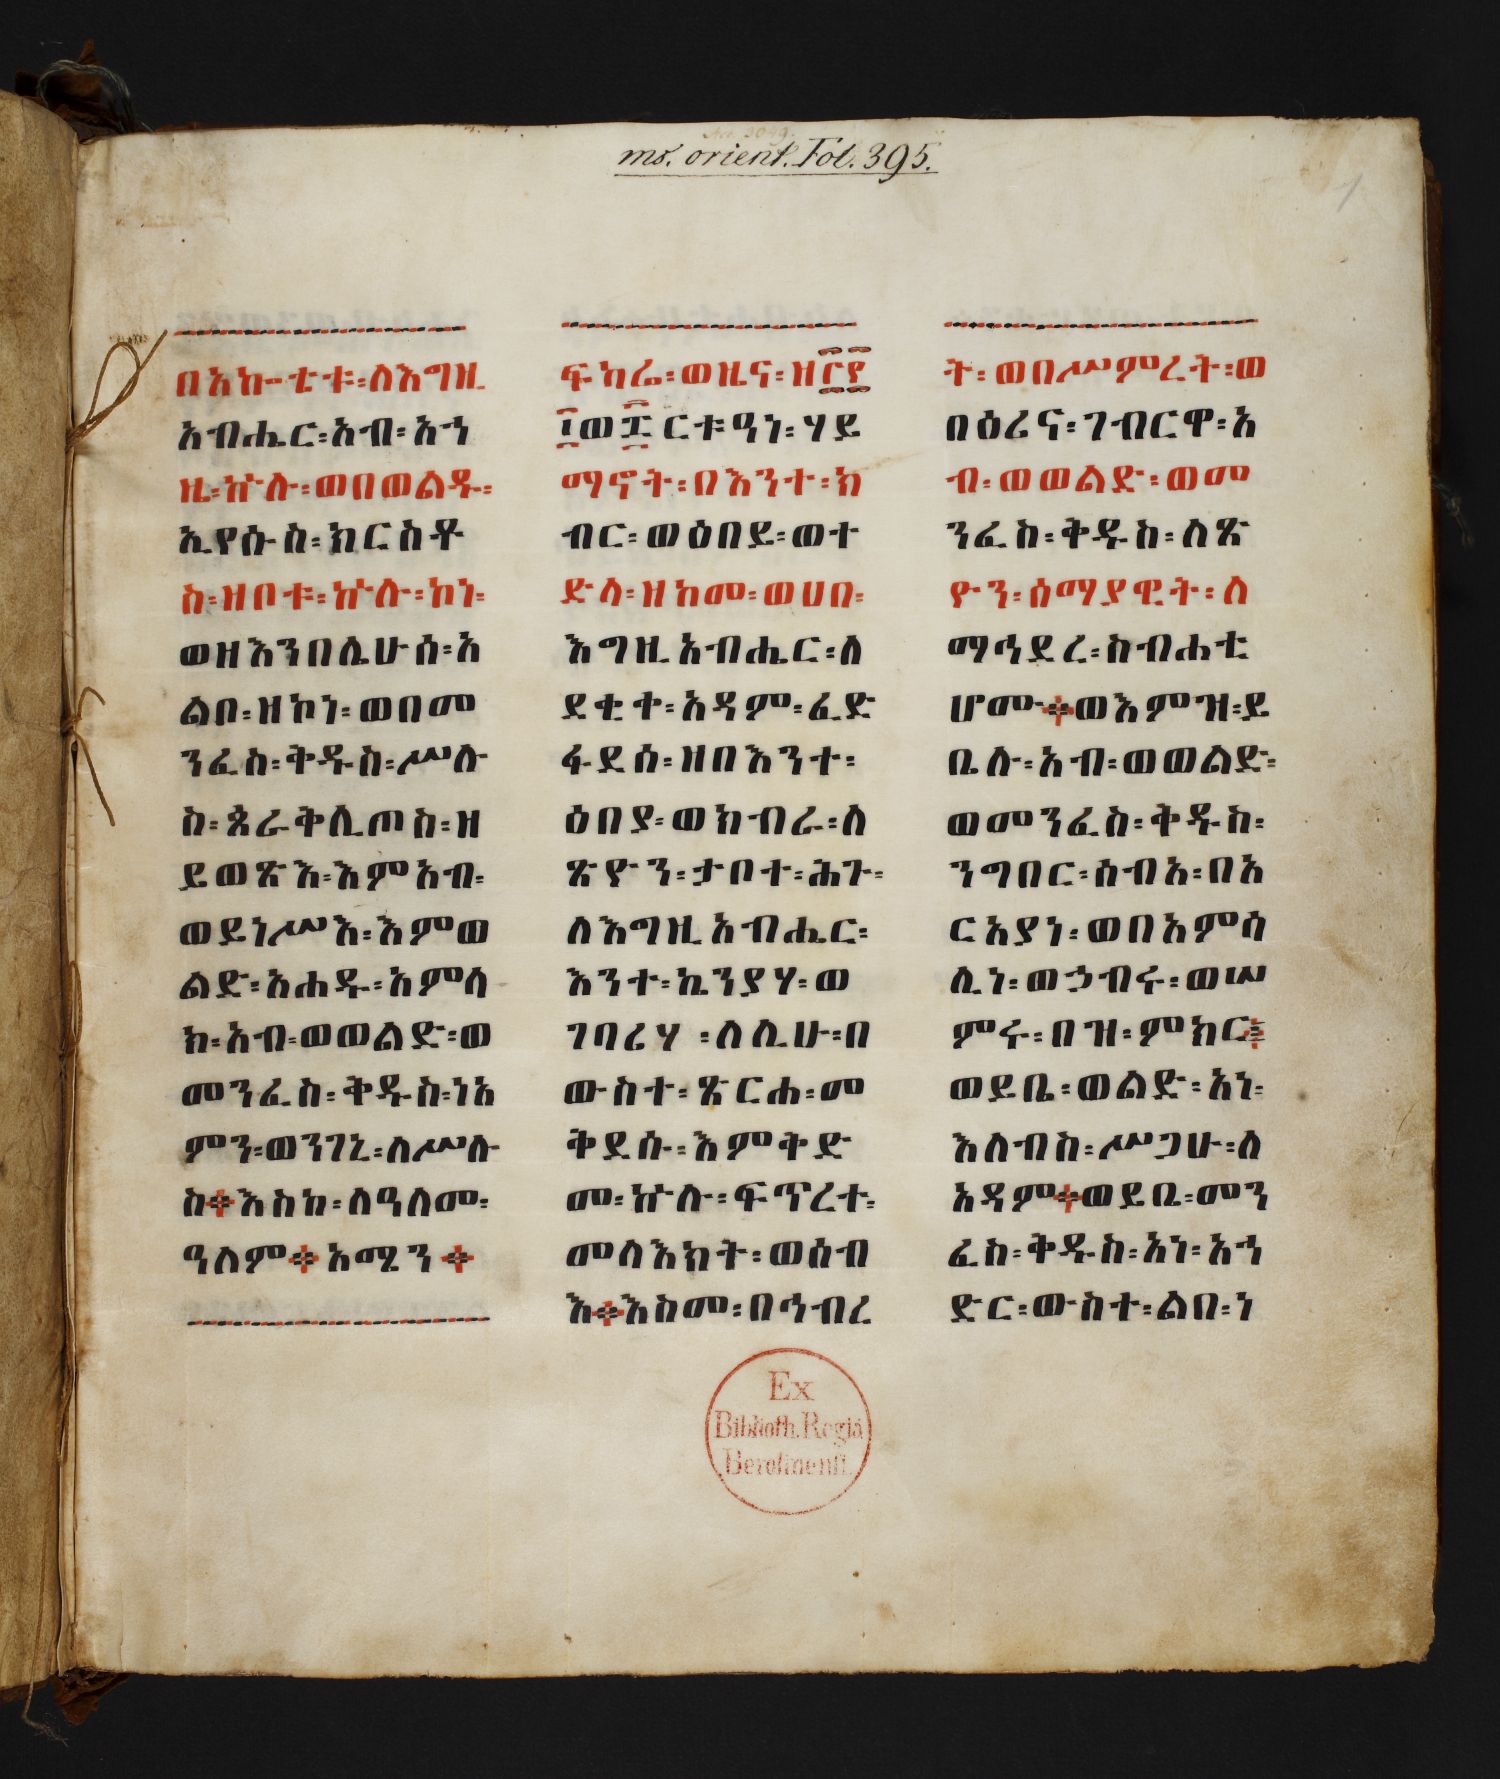 ms. orient. Fol. 395.
1
በአኰቴቱ፡ለእግዚ
አብሔር፡አብ፡አኀ
ዜ፡ኵሉ፡ወበወልዱ፡
ኢየሱስ፡ክርስቶ
ስ፡ዘቦቱ፡ኵሉ፡ኮነ፡
ወዘእንበሌሁሰ፡አ
ልቦ፡ዘኮነ፡ወበመ
ንፈስ፡ቅዱስ፡ሥሉ
ስ፡ጰራቅሊጦስ፡ዘ
ይወጽእ፡እምአብ፡
ወይነሥእ፡እምወ
ልድ፡አሐዱ፡አምላ
ክ፡አብ፡ወወልድ፡ወ
መንፈስ፡ቅዱስ፡ነአ
ምን፡ወንገኒ፡ለሥሉ
ስ፨እስከ፡ለዓለመ፡
ዓለም፨አሜን፨
ፍካሬ፡ወዜና፡ዘ፫፻
፲ወ፰ርቱዓነ፡ሃይ
ማኖት፡በእንተ፡ክ
ብር፡ወዕበይ፡ወተ
ድላ፡ዘከመ፡ወሀበ፡
እግዚአብሔር፡ለ
ደቂቀ፡አዳም፡ፈድ
ፋደሰ፡ዘበእንተ፡
ዕበያ፡ወክብራ፡ለ
ጽዮን፡ታቦተ፡ሕጉ፡
ለእግዚአብሔር፡
እንተ፡ኪንያሃ፡ወ
ገባሬሃ፡ለሊሁ፡በ
ውስተ፡ጽርሐ፡መ
ቅደሱ፡እምቅድ
መ፡ኵሉ፡ፍጥረተ፡
መላእክት፡ወሰብ
እ፨እስመ፡በኅብረ
ት፡ወበሥምረት፡ወ
በዕሪና፡ገብርዋ፡አ
ብ፡ወወልድ፡ወመ
ንፈስ፡ቅዱስ፡ለጽ
ዮን፡ሰማያዊት፡ለ
ማኅደረ፡ስብሐቲ
ሆሙ፨ወእምዝ፡ይ
ቤሉ፡አብ፡ወወልድ፡
ወመንፈስ፡ቅዱስ፡
ንግበር፡ሰብአ፡በአ
ርአያነ፡ወበአምሳ
ሊነ፡ወኃብሩ፡ወሠ
ምሩ፡በዝ፡ምክር፨
ወይቤ፡ወልድ፡አነ፡
እለብስ፡ሥጋሁ፡ለ
አዳም፨ወይቤ፡መን
ፈስ፡ቅዱስ፡አነ፡አኀ
ድር፡ውስተ፡ልበ፡ነ
Ex
Biblioth. Regia
Berolinensi.